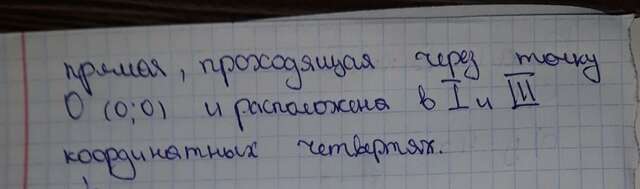 прямая, проходящая через точку
О (0;0) и расположена в I и III
координатных четвертях.